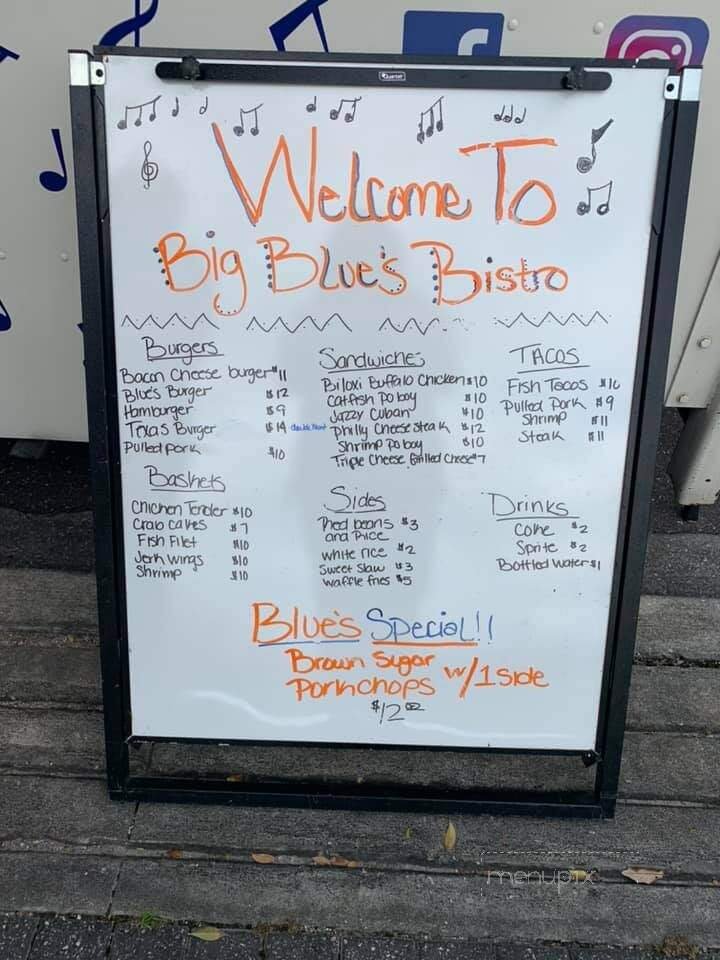 Quartet
Welcome To
Big Blue's Bistro
Burgers
Bacon Cheese burger $11
Blue's Burger $12
Hamburger $9
Texas Burger $14 double Meat
Pulled pork $10
Baskets
Chicken Tender $10
Crab Cakes $7
Fish Filet $10
Jerk wings $10
Shrimp $10
Sandwiches
Biloxi Buffalo Chicken $10
Catfish Po boy $10
Jazzy Cuban $10
Philly Cheese Steak $12
Shrimp Po boy $10
Triple Cheese Grilled Cheese $7
Sides
Red beans $3
and Rice
white rice $2
Sweet Slaw $3
Waffle fries $5
TACOS
Fish Tacos $10
Pulled Pork $9
Shrimp $11
Steak $11
Drinks
Coke $2
Sprite $2
Bottled Water $1
Blue's Special!!
Brown Sugar
Porkchops w/1 Side
$12.00
menupix